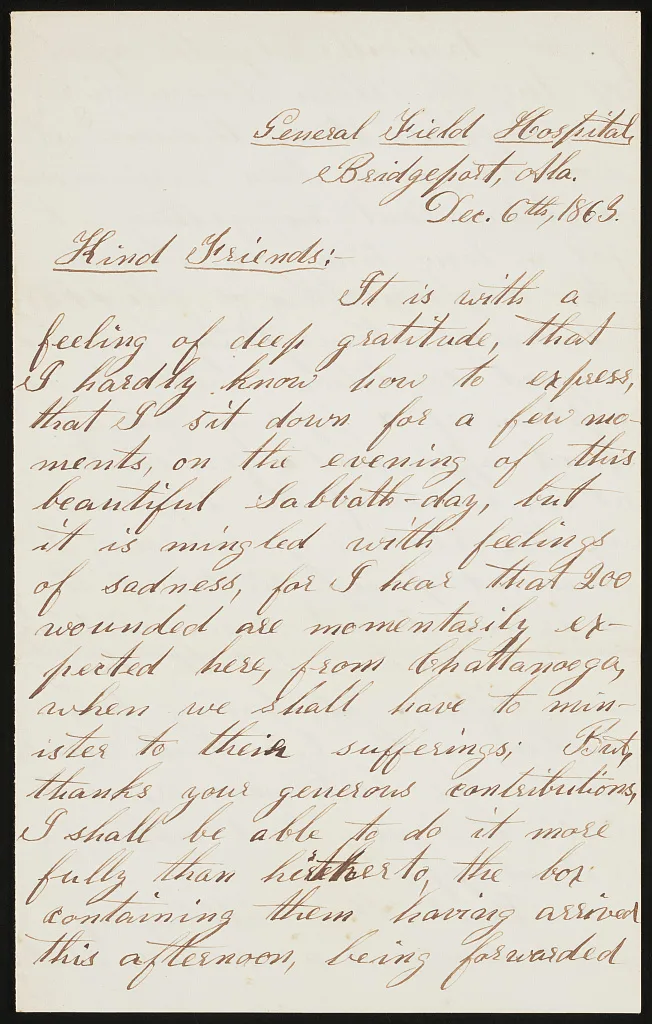 General Field Hospital,
Bridgeport, Ala.
Dec. 6th, 1863.
Kind Friends:-
It is with a
feeling of deep gratitude, that
I hardly know how to express,
that I sit down for a few mo-
ments, on the evening of this
beautiful Sabbath-day, but
it is mingled with feelings
of sadness, for I hear that 200
wounded are momentarily ex-
pected here, from Chattanoega,
when we shall have to min-
ister to their sufferings; But,
thanks your generous contributions,
I shall be able to do it more
fully than hitherto, the box
containing them having arrived
this afternoon, being forwarded